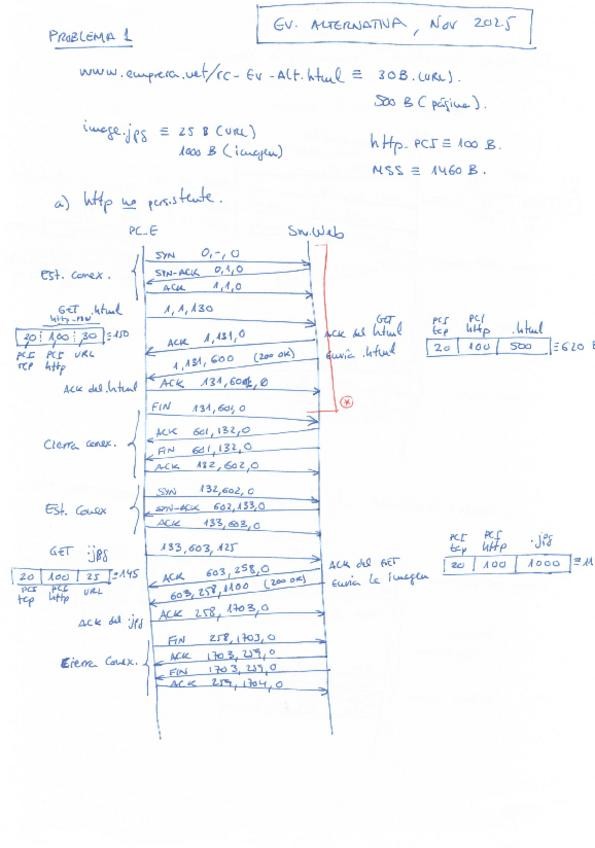 PROBLEMA 1
EV. ALTERNATIVA, NOV 2025
www.empresa.net/rc-Ev-Alt.html ≡ 30B (URL).
500 B (página).
image.jpg ≡ 25 B (URL)
1000 B (imagen)
http-PCI ≡ 100 B.
MSS ≡ 1460 B.
a) http no persistente.
PC_E
Srv.Web
Est. Conex.
SYN 0,-,0
SYN-ACK 0,1,0
ACK 1,1,0
GET .html
1,1,130
20 | 100 | 30 ≡ 150
PCI tcp PCI http URL
ACK 1,131,0
GET
ACK del html
1,131,600 (200 OK)
Envia .html
PCI tcp PCI http .html
20 | 100 | 500 ≡ 620 B
ACK del .html
ACK 131,601,0
Cierra conex.
FIN 131,601,0
ACK 601,132,0
FIN 601,132,0
ACK 132,602,0
Est. Conex
SYN 132,602,0
SYN-ACK 602,133,0
ACK 133,603,0
GET .jpg
133,603,125
20 | 100 | 25 ≡ 145
PCI tcp PCI http URL
ACK 603,258,0
ACK del GET
603,258,1100 (200 OK)
Envia la imagen
PCI tcp PCI http .jpg
20 | 100 | 1000 ≡ 11
ACK del .jpg
ACK 258,1703,0
Cierra Conex.
FIN 258,1703,0
ACK 1703,259,0
FIN 1703,259,0
ACK 259,1704,0